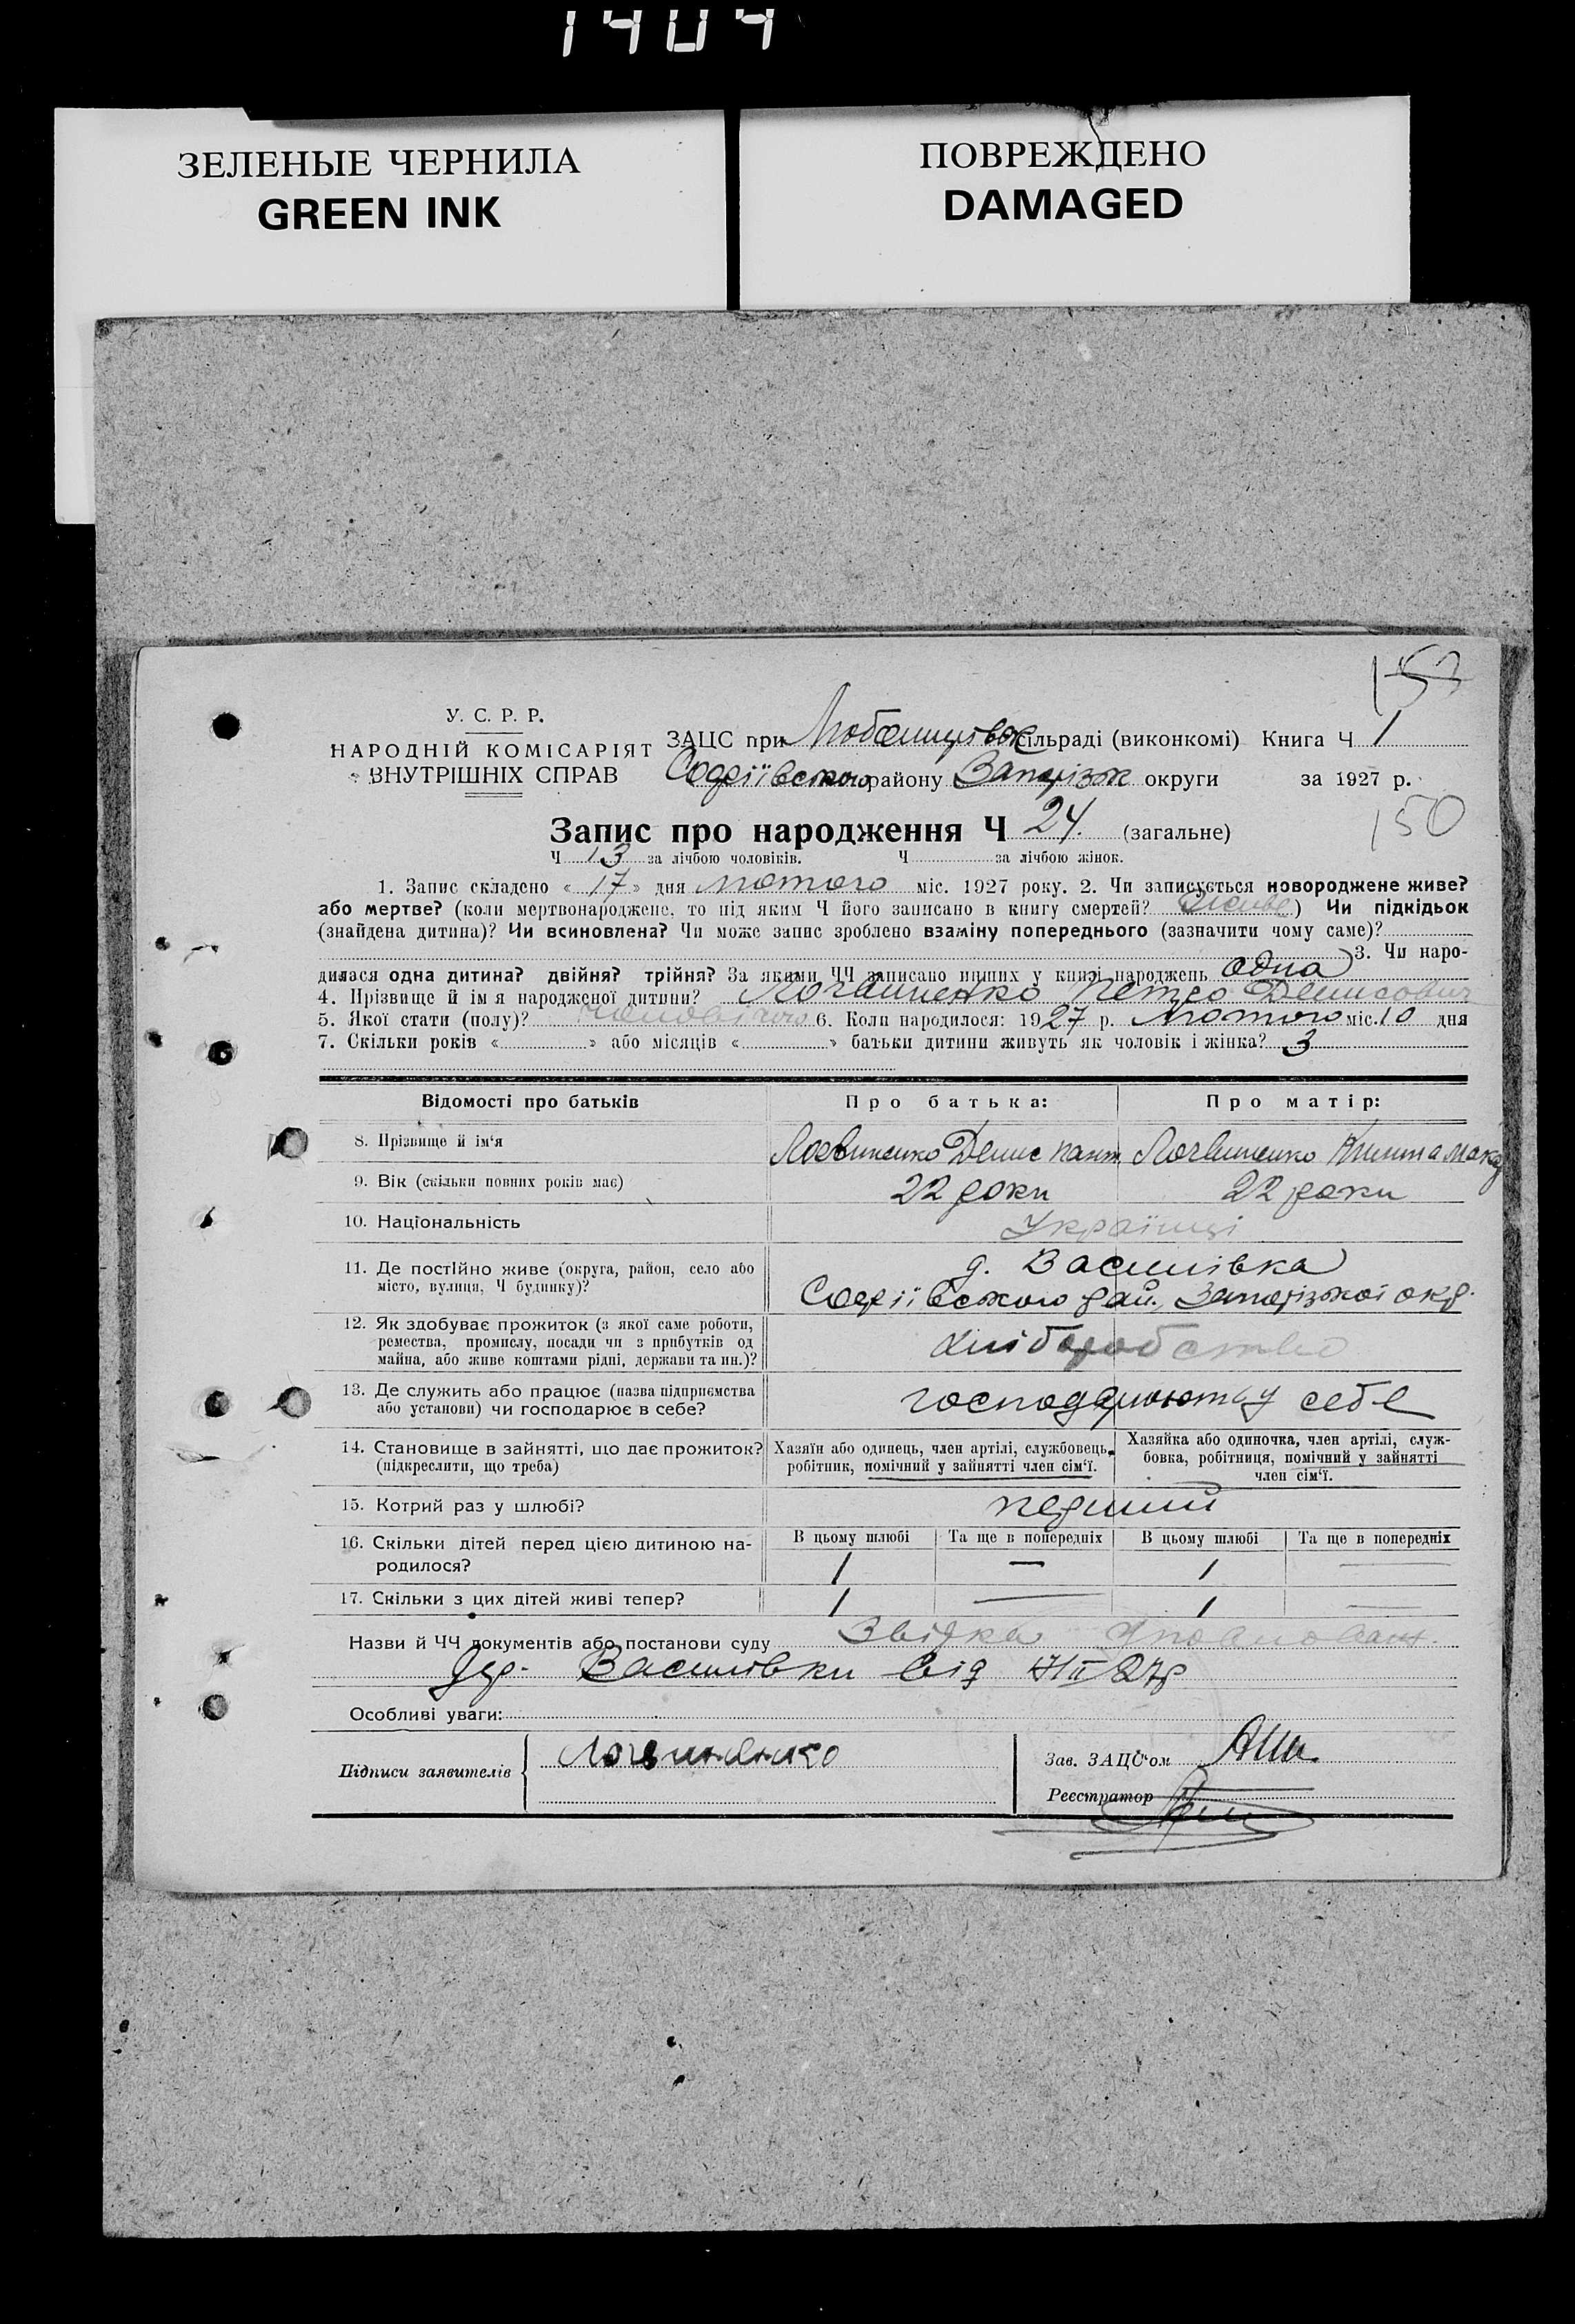 1404
ЗЕЛЕНЫЕ ЧЕРНИЛА
GREEN INK
ПОВРЕЖДЕНО
DAMAGED
153
У. С. Р. Р.
НАРОДНІЙ КОМІСАРІЯТ
ВНУТРІШНІХ СПРАВ
ЗАЦС при Любомирівськ сільраді (виконкомі) Книга Ч 1
Софіївського району Запоріжж округи за 1927 р.
Запис про народження Ч 24. (загальне)
150
Ч 13 за лічбою чоловіків. Ч за лічбою жінок.
1. Запис складено « 17 » дня лютого міс. 1927 року. 2. Чи записується новороджене живе?
або мертве? (коли мертвонароджене, то під яким Ч його записано в книгу смертей? живе) Чи підкідьок
(знайдена дитина)? Чи всиновлена? Чи може запис зроблено взаміну попереднього (зазначити чому саме)?
3. Чи наро-
дилася одна дитина? двійня? трійня? За якими ЧЧ записано инших у книзі народжень одна
4. Прізвище й ім я народженої дитини? Логвиненко Петро Денисович
5. Якої стати (полу)? чоловічого 6. Коли народилося: 1927 р. лютого міс. 10 дня
7. Скільки років « » або місяців « » батьки дитини живуть як чоловік і жінка? 3
Відомості про батьків Про батька: Про матір:
8. Прізвище й ім'я Логвиненко Денис Пант. Логвиненко
9. Вік (скільки повних років має) 22 роки 22 роки
10. Національність Українці
11. Де постійно живе (округа, район, село або
місто, вулиця, Ч будинку)?
д. Василівка
Софіївського рай., Запорізької окр.
12. Як здобуває прожиток (з якої саме роботи,
ремества, промислу, посади чи з прибутків од
майна, або живе коштами рідні, держави та ин.)?
хліборобство
13. Де служить або працює (назва підприємства
або установи) чи господарює в себе?
господарюють у себе
14. Становище в зайнятті, що дає прожиток?
(підкреслити, що треба)
Хазяїн або одинець, член артілі, службовець,
робітник, помічний у зайнятті член сім'ї.
Хазяйка або одиночка, член артілі, служ-
бовка, робітниця, помічний у зайнятті
член сім'ї.
15. Котрий раз у шлюбі? перший
16. Скільки дітей перед цією дитиною на-
родилося?
В цьому шлюбі Та ще в попередніх В цьому шлюбі Та ще в попередніх
1 — 1 —
17. Скільки з цих дітей живі тепер? 1 — 1 —
Назви й ЧЧ документів або постанови суду Звідка Уповноваж.
дер. Василівки від
Особливі уваги:
Підписи заявителів Логвиненко
Зав. ЗАЦС'ом
Реєстратор